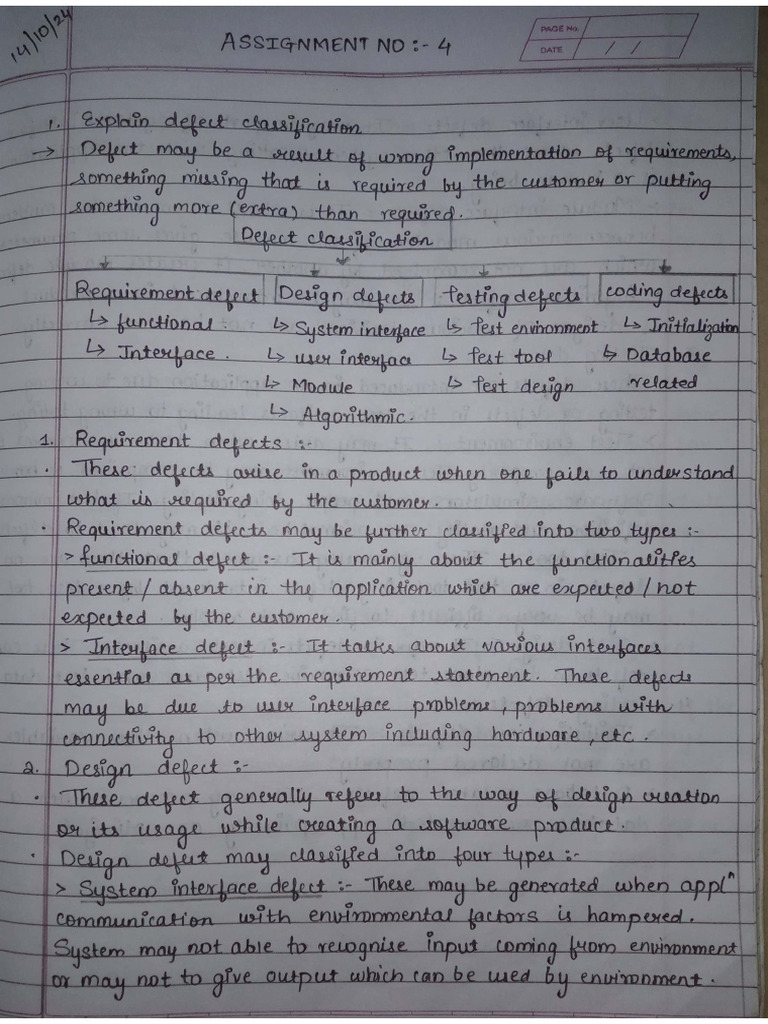 14/10/24
ASSIGNMENT NO :- 4
PAGE No.
DATE / /
1. Explain defect classification
→ Defect may be a result of wrong implementation of requirements,
something missing that is required by the customer or putting
something more (extra) than required.
Defect classification
Requirement defect Design defects Testing defects coding defects
↳ functional ↳ System interface ↳ Test environment ↳ Initialization
↳ Interface. ↳ user interface ↳ Test tool ↳ Database
↳ Module ↳ Test design related
↳ Algorithmic.
1. Requirement defects :-
· These defects arise in a product when one fails to understand
what is required by the customer.
· Requirement defects may be further classified into two types :-
> functional defect :- It is mainly about the functionalities
present / absent in the application which are expected / not
expected by the customer.
> Interface defect :- It talks about various interfaces
essential as per the requirement statement. These defects
may be due to user interface problems, problems with
connectivity to other system including hardware, etc.
2. Design defect :-
· These defect generally refers to the way of design creation
or its usage while creating a software product.
· Design defect may classified into four types :-
> System interface defect :- These may be generated when applⁿ
communication with environmental factors is hampered.
System may not able to recognise input coming from environment
or may not to give output which can be used by environment.